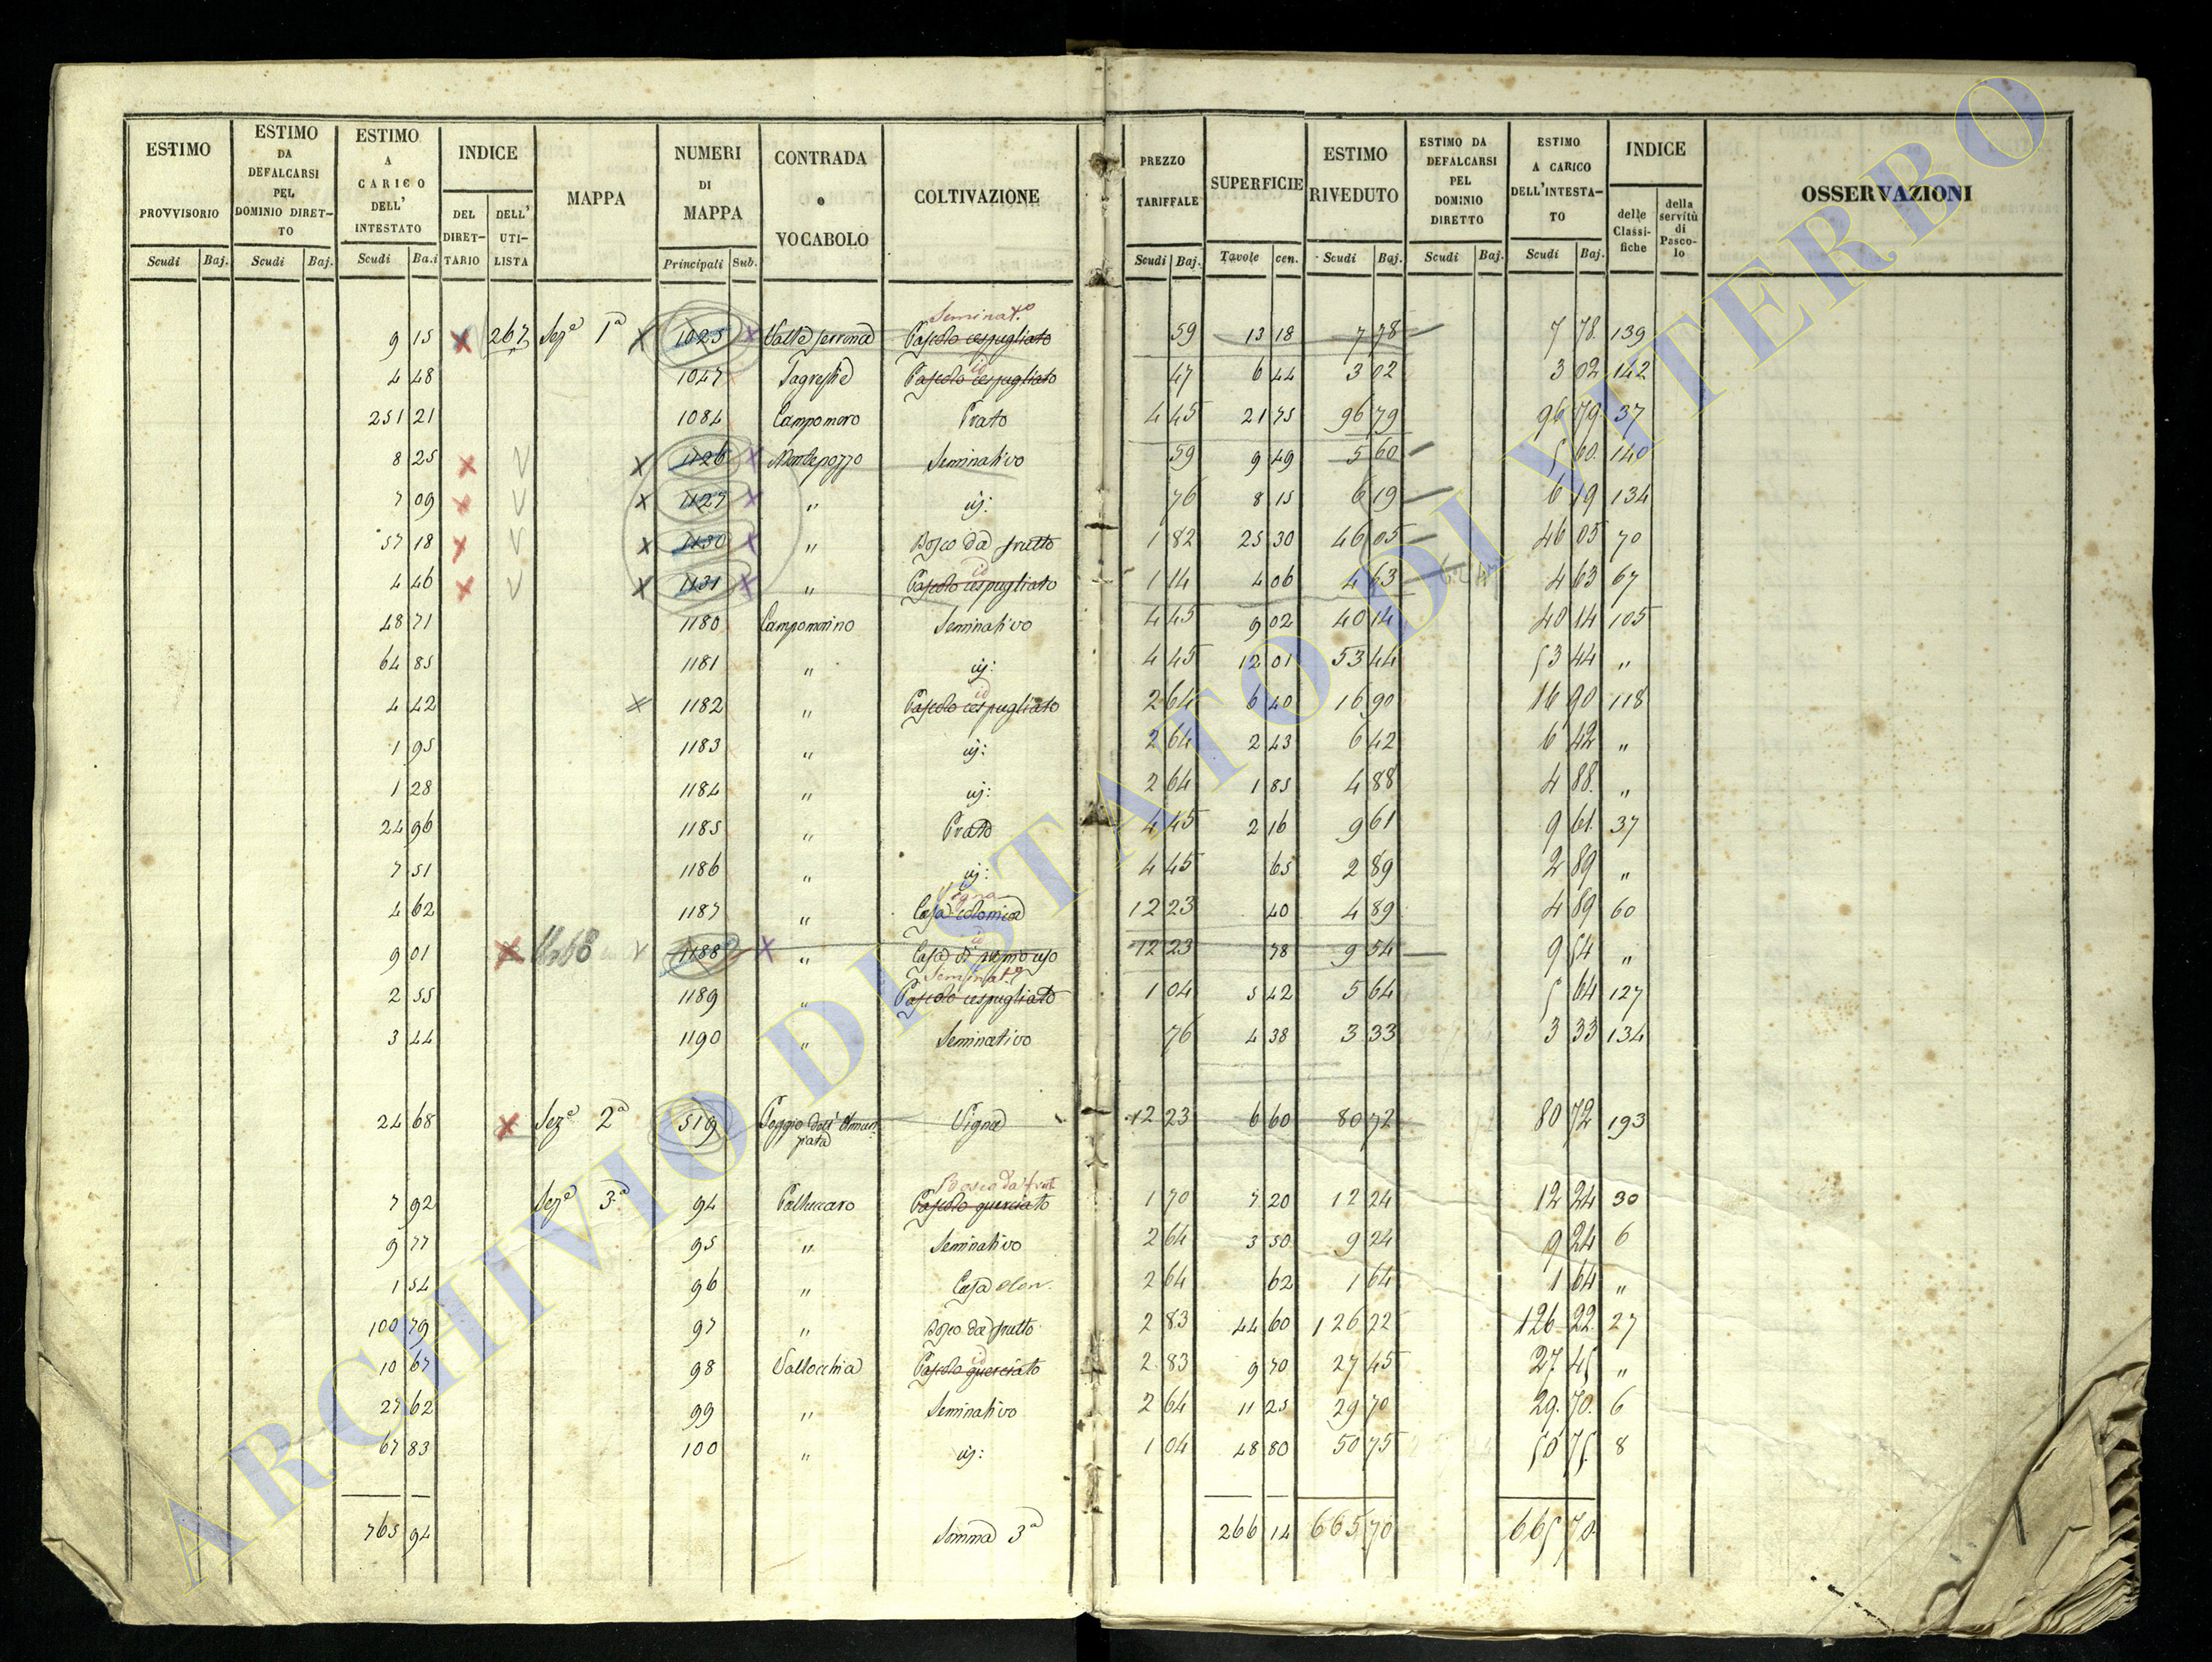 ESTIMO PROVVISORIO Scudi Baj.
ESTIMO DA DEFALCARSI PEL DOMINIO DIRET-TO Scudi Baj.
ESTIMO A CARICO DELL' INTESTATO Scudi Ba.i
INDICE DEL DIRET-TARIO DELL' UTI-LISTA
MAPPA
NUMERI DI MAPPA Principali Sub.
CONTRADA o VOCABOLO
COLTIVAZIONE
PREZZO TARIFFALE Scudi Baj.
SUPERFICIE Tavole cen.
ESTIMO RIVEDUTO Scudi Baj.
ESTIMO DA DEFALCARSI PEL DOMINIO DIRETTO Scudi Baj.
ESTIMO A CARICO DELL'INTESTA-TO Scudi Baj.
INDICE delle Classi-fiche della servitù di Pasco-lo
OSSERVAZIONI
Seminat.o
9 15 x 267 Sez.e 1a x 1025 x Pascolo cespugliato 59 13 18 7 78 7 78 139
id
4 48 1047 Pascolo cespugliato 47 6 44 3 02 3 02 142
251 21 1084 Campomoro Prato 4 45 21 75 96 79 96 79 37
8 25 x v x 1126 x Montepozzo Seminativo 59 9 49 5 60 5 60 140
7 09 x v x 1127 x " id: 76 8 15 6 19 6 19 134
57 18 x v x 1130 x " Bosco da frutto 1 82 25 30 46 05 46 05 70
id
4 46 x v x 1131 x " Pascolo cespugliato 1 14 4 06 4 63 4 63 67
48 71 1180 Campomorino Seminativo 4 45 9 02 40 14 40 14 105
64 85 1181 " id: 4 45 12 01 53 44 53 44 "
id
4 42 x 1182 " Pascolo cespugliato 2 64 6 40 16 90 16 90 118
1 95 1183 " id: 2 64 2 43 6 42 6 42 "
1 28 1184 " id: 2 64 1 85 4 88 4 88 "
24 96 1185 " Prato 4 45 2 16 9 61 9 61 37
7 51 1186 " id: 4 45 65 2 89 2 89 "
Vigna
4 62 1187 " Casa colonica 12 23 40 4 89 4 89 60
id
9 01 x v 1188 x " Casa di proprio uso 12 23 78 9 54 9 54 "
Seminat.o
2 55 1189 " Pascolo cespugliato 1 04 5 42 5 64 5 64 127
3 44 1190 " Seminativo 76 4 38 3 33 3 33 134
24 68 x Sez.e 2a 519 Poggio dell' Annun
ziata Vigna 12 23 6 60 80 72 80 72 193
Bosco da frut.
7 92 Sez.e 3.a 94 Palluccaro Pascolo querciato 1 70 7 20 12 24 12 24 30
9 77 95 " Seminativo 2 64 3 50 9 24 9 24 6
1 54 96 " Casa 2 64 62 1 64 1 64 "
100 79 97 " Bosco da frutto 2 83 44 60 126 22 126 22 27
id
10 67 98 Vallocchia Pascolo querciato 2 83 9 70 27 45 27 45 "
27 62 99 " Seminativo 2 64 11 25 29 70 29 70 6
67 83 100 " id: 1 04 48 80 50 75 50 75 8
765 94 Somma 3a 266 14 665 70 665 70
ARCHIVIO DI STATO DI VITERBO